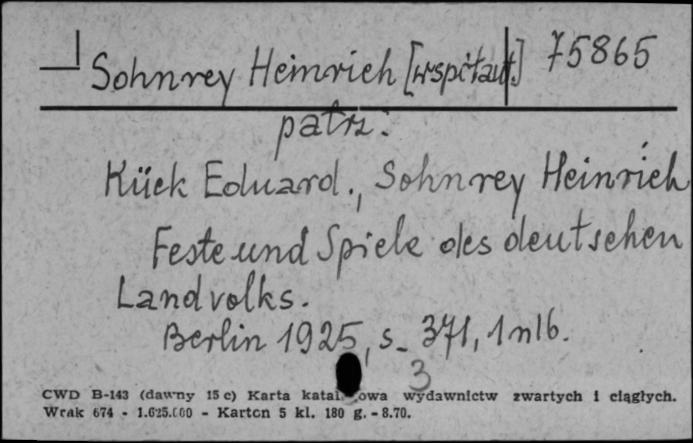 Sohnrey Heinrich [współaut.] 75865
patrz:
Kück Eduard., Sohnrey Heinrich
Feste und Spiele des deutschen
Landvolks.
Berlin 1925, s. 371, 1 nlb.
3
CWD B-143 (dawny 15 c) Karta katal owa wydawnictw zwartych i ciągłych.
Wrak 674 - 1.625.000 - Karton 5 kl. 180 g. - 8.70.